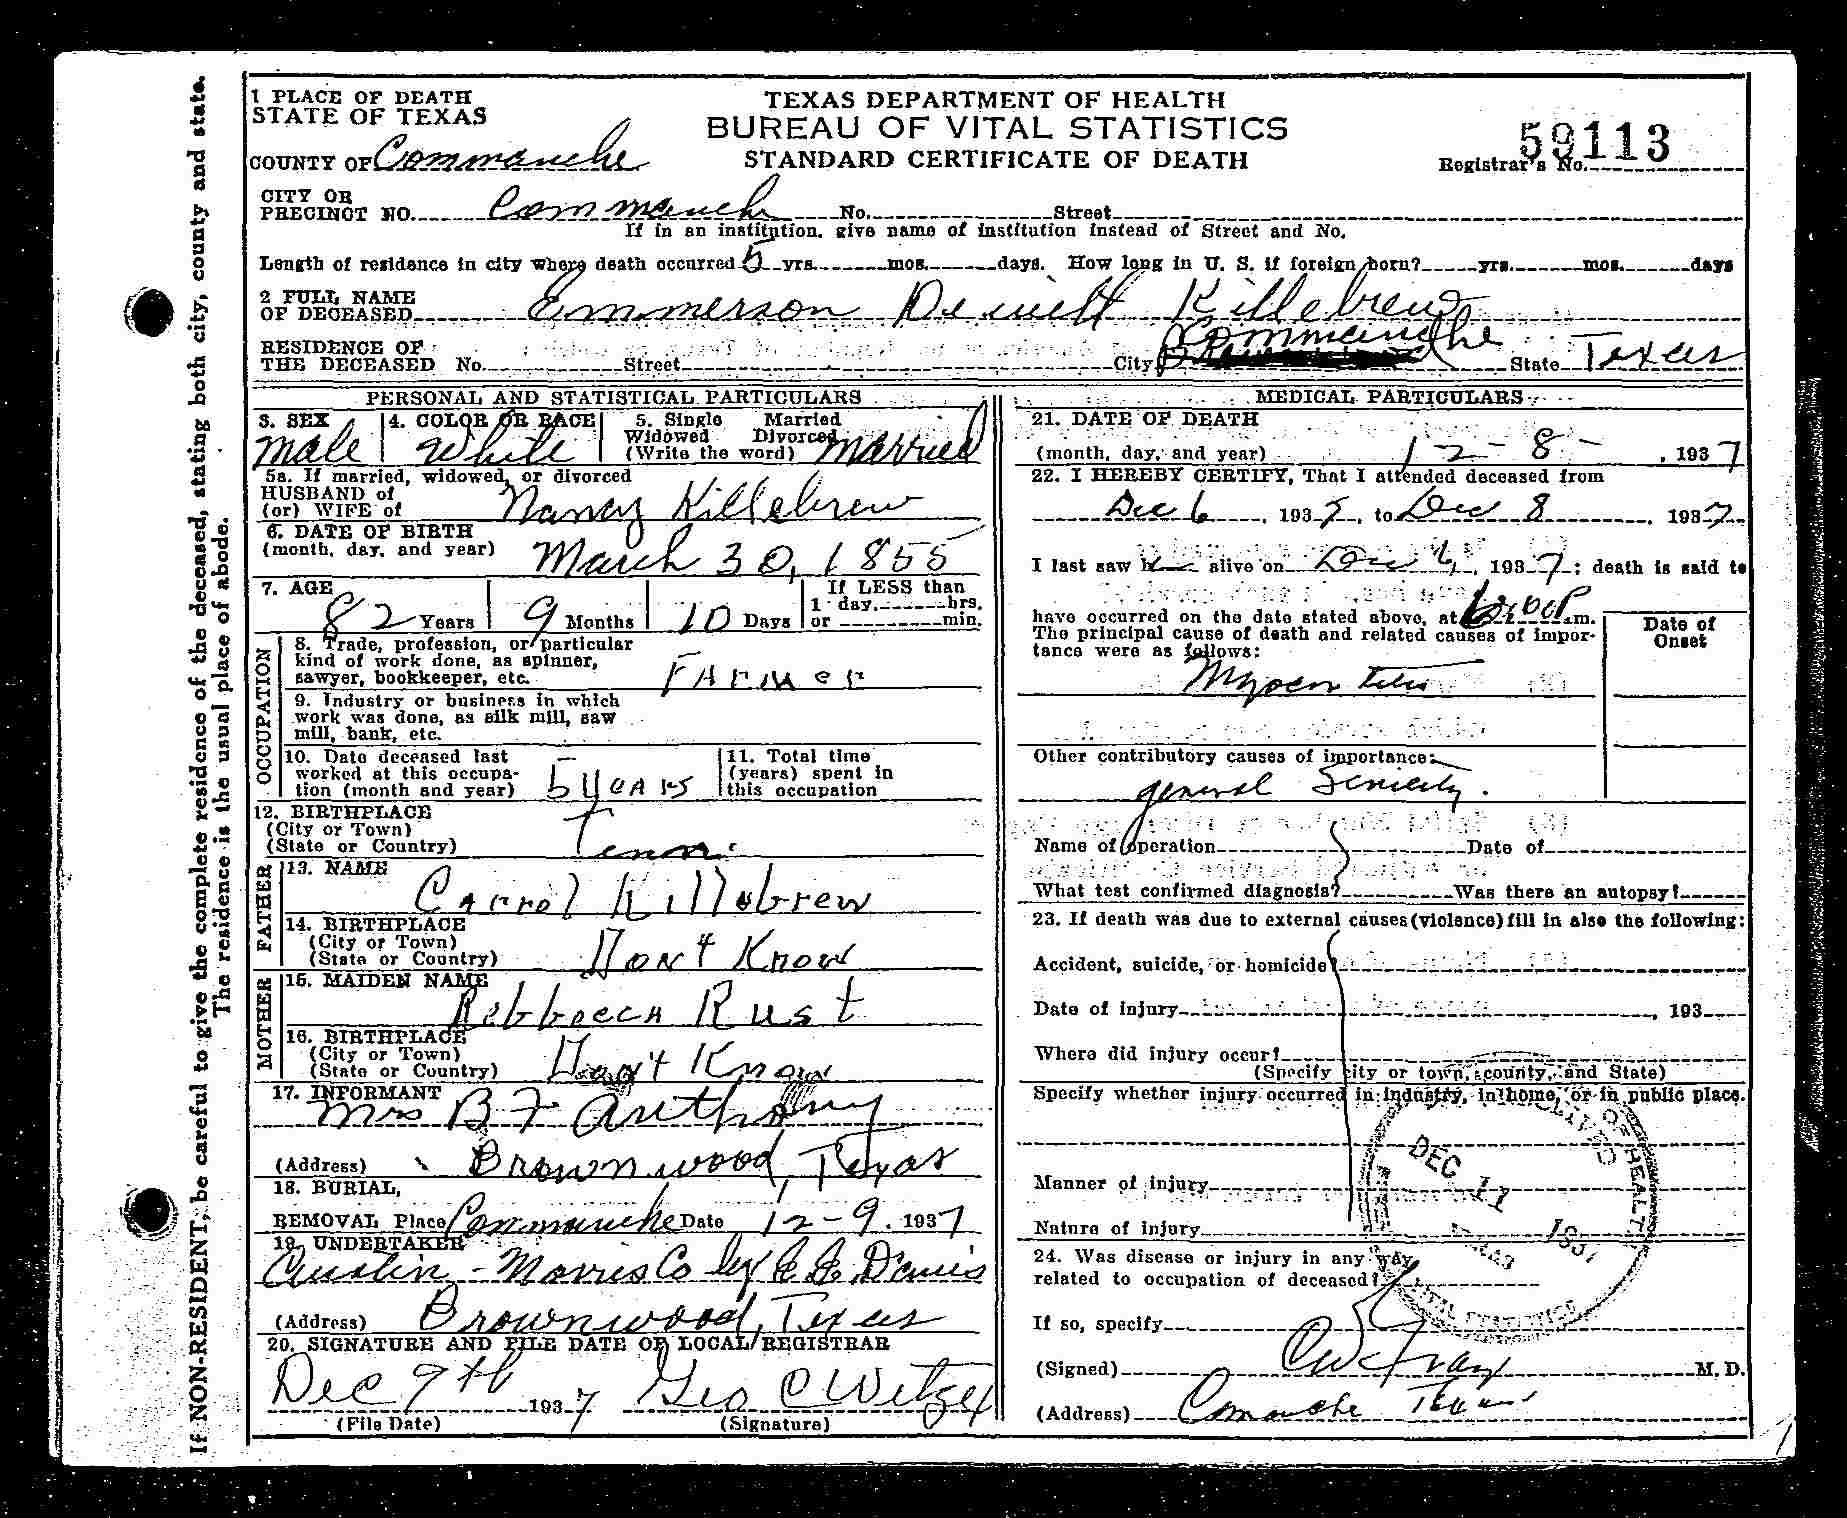 If NON-RESIDENT, be careful to give the complete residence of the deceased, stating both city, county and state.
The residence is the usual place of abode.
1 PLACE OF DEATH
STATE OF TEXAS
COUNTY OF Commanche
TEXAS DEPARTMENT OF HEALTH
BUREAU OF VITAL STATISTICS
STANDARD CERTIFICATE OF DEATH
59113
Registrar's No.
CITY OR
PRECINCT NO. Commanche No. Street
If in an institution, give name of institution instead of Street and No.
Length of residence in city where death occurred 5 yrs. mos. days. How long in U. S. if foreign born? yrs. mos. days
2 FULL NAME
OF DECEASED Emmerson Dewitt Killebrew
RESIDENCE OF
THE DECEASED No. Street City Commanche State Texas
PERSONAL AND STATISTICAL PARTICULARS
3. SEX
Male
4. COLOR OR RACE
White
5. Single Married
Widowed Divorced
(Write the word) Married
5a. If married, widowed, or divorced
HUSBAND of
(or) WIFE of Nancy Killebrew
6. DATE OF BIRTH
(month, day, and year) March 30, 1855
7. AGE
82 Years 9 Months 10 Days
If LESS than
1 day, hrs.
or min.
OCCUPATION
8. Trade, profession, or particular
kind of work done, as spinner,
sawyer, bookkeeper, etc. Farmer
9. Industry or business in which
work was done, as silk mill, saw
mill, bank, etc.
10. Date deceased last
worked at this occupa-
tion (month and year) 5 years
11. Total time
(years) spent in
this occupation
12. BIRTHPLACE
(City or Town)
(State or Country) Tenn.
FATHER
13. NAME
Carrol Killebrew
14. BIRTHPLACE
(City or Town)
(State or Country) Dont Know
MOTHER
15. MAIDEN NAME
Rebbecca Rust
16. BIRTHPLACE
(City or Town)
(State or Country) Don't Know
17. INFORMANT
Mrs B F Anthony
(Address) Brownwood, Texas
18. BURIAL,
REMOVAL Place Commanche Date 12-9, 1937
19. UNDERTAKER
Austin-Morris Co by Davis
(Address) Brownwood, Texas
20. SIGNATURE AND FILE DATE OF LOCAL REGISTRAR
Dec 9th 1937 Geo C Wetzel
(File Date) (Signature)
MEDICAL PARTICULARS
21. DATE OF DEATH
(month, day, and year) 12-8-, 1937
22. I HEREBY CERTIFY, That I attended deceased from
Dec 6, 1937, to Dec 8, 1937
I last saw h alive on Dec 6, 1937; death is said to
have occurred on the date stated above, at P.m.
The principal cause of death and related causes of impor-
tance were as follows:
Date of
Onset
Myocarditis
Other contributory causes of importance:
general Senility.
Name of operation Date of
What test confirmed diagnosis? Was there an autopsy?
23. If death was due to external causes (violence) fill in also the following:
Accident, suicide, or homicide?
Date of injury , 193
Where did injury occur?
(Specify city or town, county, and State)
Specify whether injury occurred in industry, in home, or in public place.
Manner of injury
Nature of injury
24. Was disease or injury in any way
related to occupation of deceased?
If so, specify
(Signed) M. D.
(Address) Comanche Texas
DEC 11 1937
OF HEALTH
VITAL STATISTICS